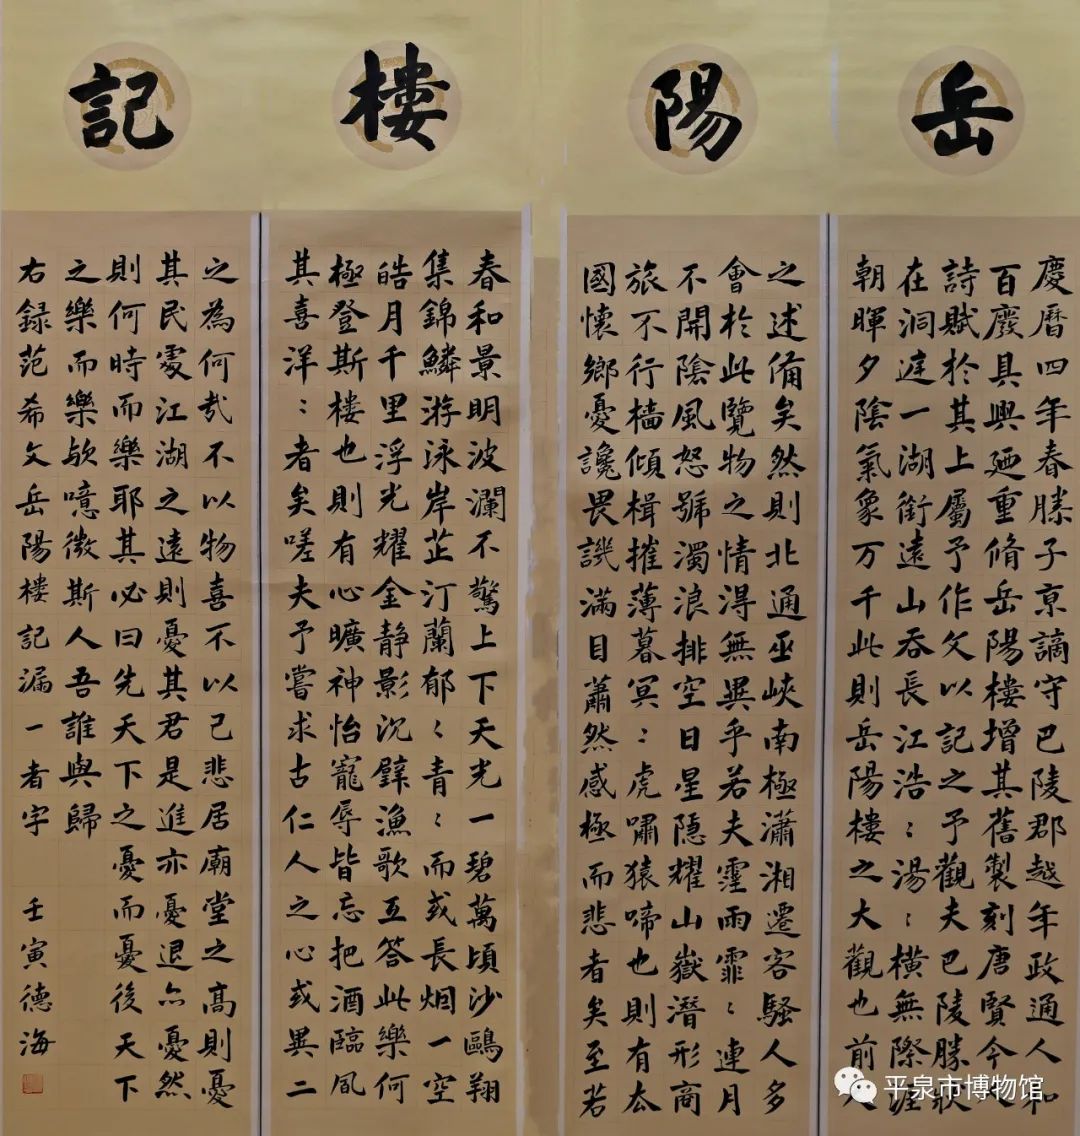 岳陽樓記
慶曆四年春滕子京謫守巴陵郡越年政通人和
百廢具興廼重脩岳陽樓增其舊製刻唐賢今人
詩賦於其上屬予作文以記之予觀夫巴陵勝狀
在洞庭一湖銜遠山吞長江浩〻湯〻橫無際涯
朝暉夕陰氣象万千此則岳陽樓之大觀也前人
之述俻矣然則北通巫峽南極瀟湘遷客騷人多
會於此覽物之情得無異乎若夫霪雨霏〻連月
不開陰風怒號濁浪排空日星隱耀山嶽潛形商
旅不行檣傾楫摧薄暮冥〻虎嘯猿啼也則有去
國懷鄉憂讒畏譏滿目蕭然感極而悲者矣至若
春和景明波瀾不驚上下天光一碧萬頃沙鷗翔
集錦鱗游泳岸芷汀蘭郁〻青〻而或長烟一空
皓月千里浮光耀金静影沉璧漁歌互答此樂何
極登斯樓也則有心曠神怡寵辱皆忘把酒臨風
其喜洋〻者矣嗟夫予嘗求古仁人之心或異二
之為何哉不以物喜不以己悲居廟堂之高則憂
其民處江湖之遠則憂其君是進亦憂退亦憂然
則何時而樂耶其必曰先天下之憂而憂後天下
之樂而樂歟噫微斯人吾誰與歸
右録范希文岳陽樓記漏一者字 壬寅德海
平泉市博物馆